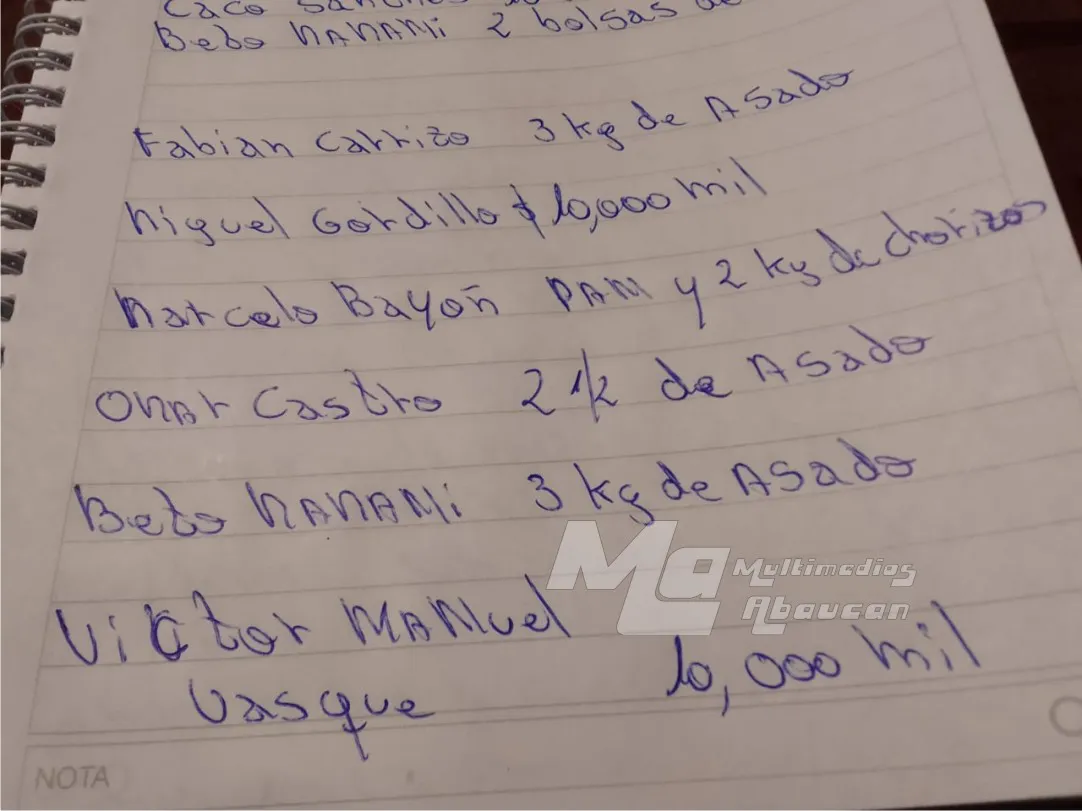 Caco
Beto MAMANi 2 bolsas de
Fabian Carrizo 3 kg de Asado
Miguel Gordillo $ 10,000 mil
Marcelo Bayoñ PAM y 2 kg de chorizos
OMAr Castro 2 1/2 de Asado
Beto MAMANi 3 kg de Asado
Ma Multimedios
Abaucan
Victor MANuel
Vasque 10,000 mil
NOTA